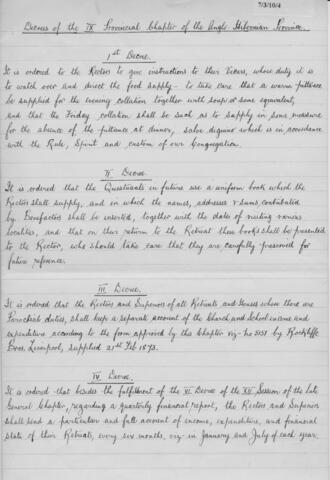 7/3/10/4
Decrees of the IX Provincial Chapter of the Anglo-Hibernian Province.
1st Decree.
It is ordered to the Rectors to give instructions to their Vicars, whose duty it is
to watch over and direct the food supply - to take care that a warm pittance
be supplied for the evening collation together with soup or some equivalent,
and that the Friday collation shall be such as to supply in some measure
for the absence of the pittance at dinner, salvo jejunio which is in accordance
with the Rule, Spirit and custom of our Congregation.
II Decree
It is ordered that the Questuants in future use a uniform book which the
Rectors shall supply, and in which the names, addresses & sums contributed
by Benefactors shall be inserted, together with the date of visiting various
localities, and that on their return to the Retreat these books shall be presented
to the Rector, who should take care that they are carefully preserved for
future reference.
III Decree.
It is ordered that the Rectors and Superiors of all Retreats and houses where there are
Parochial duties, shall keep a separate account of the Church and School income and
expenditure according to the form approved by this Chapter viz - No 5151 by Rockliffe
Bros. Liverpool, supplied 21st Feb 1893.
IV Decree.
It is ordered that besides the fulfillment of the VI Decree of the XII Session of the late
General Chapter, regarding a quarterly financial report, the Rectors and Superiors
shall send a particular and full account of income, expenditure, and financial
state of their Retreats, every six months, viz - in January and July of each year.